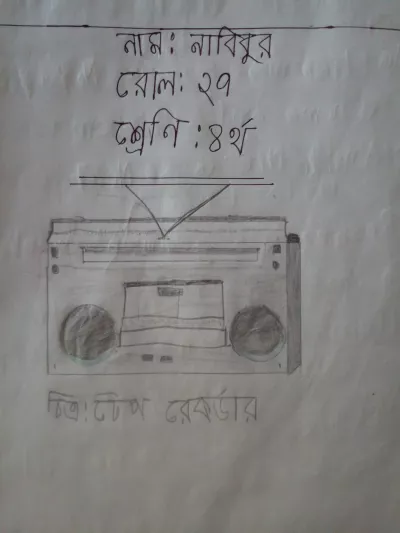 নাম: নাবিবুর
রোল: ২৭
শ্রেণি : ৪র্থ
চিত্র: টেপ রেকর্ডার